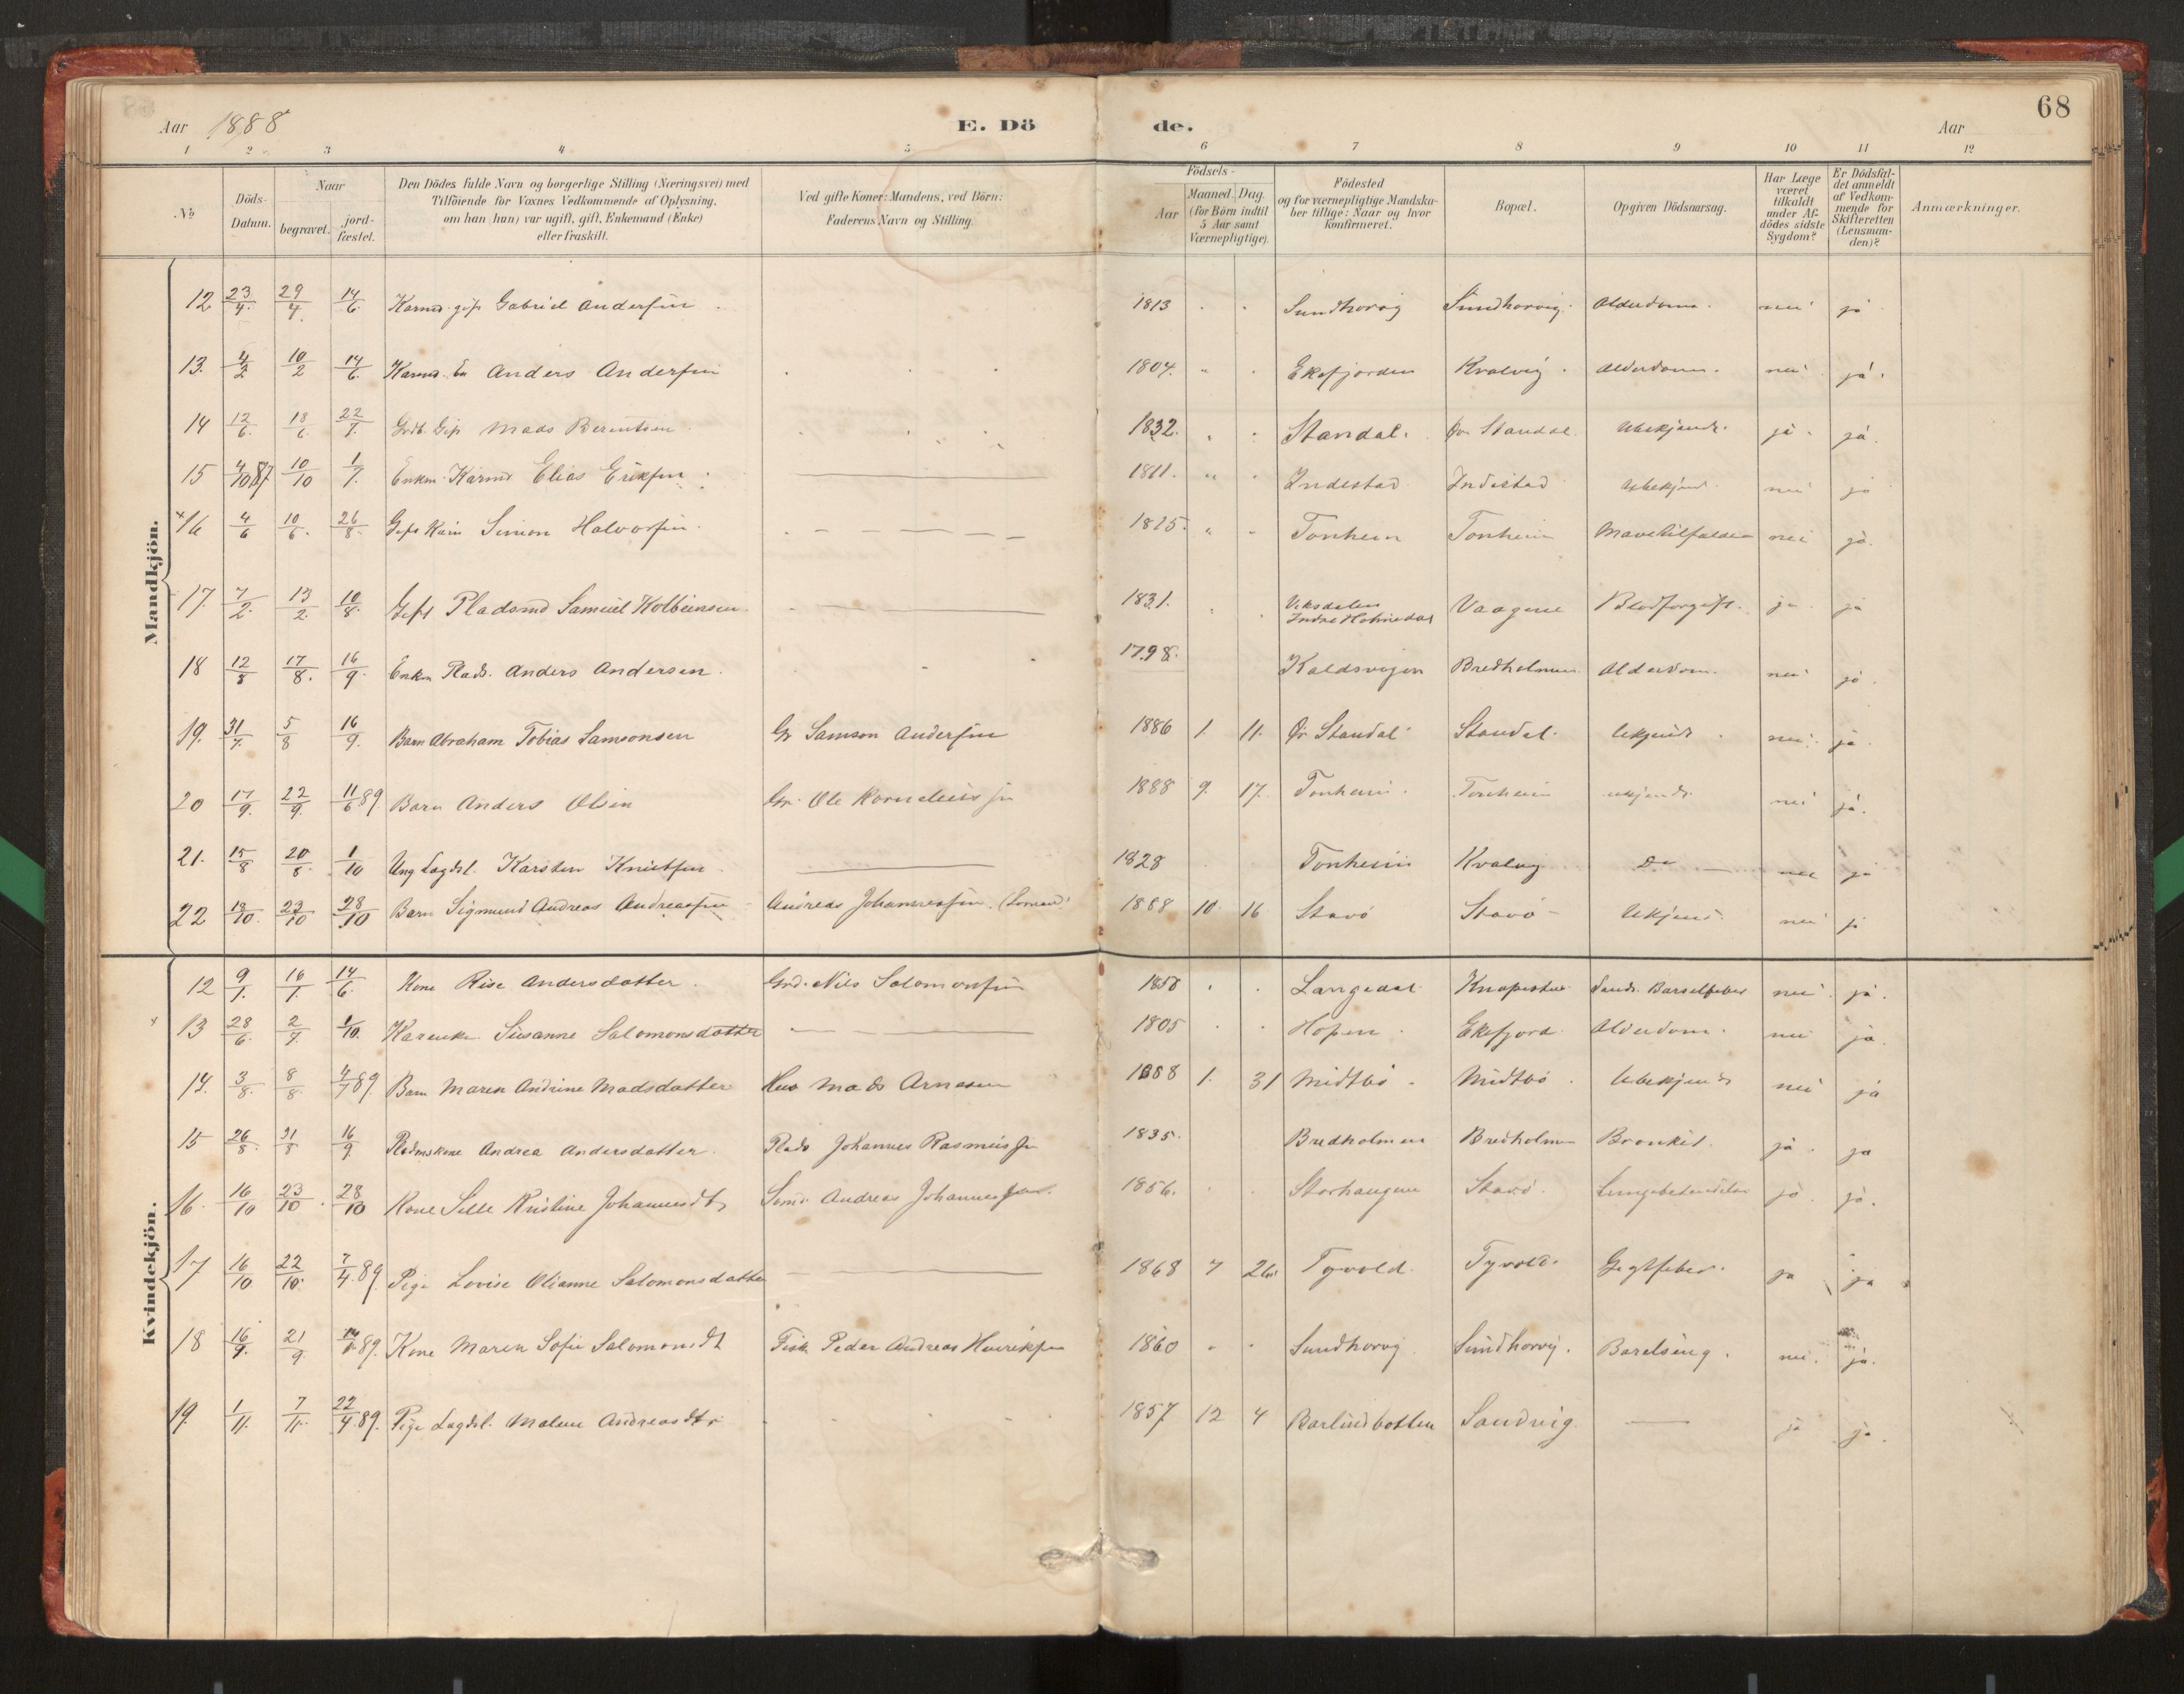 68
Aar 1888 E. Dö de. Aar
1 2 3 4 5 6 7 8 9 10 11 12
№ Döds-Datum. Naar begravet. jord-fæstet. Den Dödes fulde Navn og borgerlige Stilling (Næringsvei) med Tilföiende for Voxnes Vedkommende af Oplysning, om han (hun) var ugift, gift, Enkemand (Enke) eller fraskilt. Ved gifte Koner: Mandens, ved Börn: Faderens Navn og Stilling. Födsels- Aar Maaned. Dag. (for Börn indtil 5 Aar samt Værnepligtige). Födested og for værnepligtige Mandskaber tillige: Naar og hvor konfirmeret. Bopæl. Opgiven Dödsaarsag. Har Læge været tilkaldt under Afdödes sidste Sygdom? Er Dödsfaldet anmeldt af Vedkommende for Skifteretten (Lensmanden)? Anmærkninger.
Mandkjön.
12 23/4. 29/4 14/6. Karmd. gift Gabriel Andersen 1813 Sundhorvig Sundhorvig. Alderdom. nei ja
13. 4/2 10/2 14/6. Karmd. Anders Andersen 1804. Ekefjorden Kvalvig. Alderdom. nei ja.
14 12/6. 18/6. 22/7. Grdb. Gift Mads Berentsen 1832. Standal. Øv. Standal Ubekjendt. ja. ja.
15 4/10 87 10/10 1/7. Enkm. Karmd Elias Eriksen 1811. Indestad Indestad Ubekjend. nei ja
16 4/6 10/6. 26/8. Gift Karm Simon Halvorsen. 1825. Tonheim Tonheim nei ja.
17. 7/2. 13/2. 10/8. Gift Pladsmd Samuel Kolbeinsen 1831. Viksdalen Indre Holmedal Vaagene Blodforgift. ja. ja
18 12/8 17/8. 16/9. Enkm Plads. Anders Andersen. 1798. Kaldsvegen Bredholmen Alderdom. nei ja.
19. 31/7. 5/8 16/9. Barn Abraham Tobias Samsonsen Gr Samson Andersen 1886 1. 11. Øv Standal Standal. Ukjendt nei. ja.
20 17/9. 22/9. 11/6 89. Barn Anders Olsen Gr. Ole Korneliussen 1888 9. 17. Tonheim. Tonheim ukjendt. nei ja.
21. 15/8 20/8. 1/10 Ung Lagdsl. Karsten Knutsen 1828 Tonheim Kvalvig Do nei ja
22 18/10. 23/10 28/10 Barn Sigmund Andreas Andreassen Andreas Johannessen. 1888 10. 16 Stavö Stavö Ukjend. nei ja
Kvindekjön.
12 9/1. 16/1. 14/6. Kone Rise Andersdatter. Grd. Nils Salomonsen 1858 Langedal Knapstur Sands. Barselfeber nei. ja.
13 28/6. 2/7. 1/10. Karenke Susanne Salomonsdatter 1805 Hopen. Ekefjord. Alderdom. nei ja.
14. 3/8. 8/8. 4/7 89. Barn Maren Andrine Madsdatter Hus Mads Arnesen 1888 1. 31 Midtbö. Midtbö. Ubekjendt nei ja
15 26/8. 31/8 16/9 Pladmskone Andrea Andersdatter. Plads Johannes Rasmussen 1835. Bredholmen Bredholmen Bronkit. ja. ja
16. 16/10 23/10. 28/10 Kone Sille Kristine Johannesdt. Andreas Johannessen. 1856. Storhaugene Stavö. Lungebetændelse ja. ja.
17 16/10 22/10. 7/4. 89. Pige Lovise Olianne Salomonsdatter 1868 7 26 Tyvold. Tyvold. Gigtfeber. ja ja
18 16/9. 21/9 89. Kone Maren Sofie Salomonsdt Fisk. Peder Andreas Henriksen 1860 Sundhorvig Sundhorvig. Barelseng. nei. ja.
19. 1/11. 7/11. 22/4 89. Pige Lagdsl. Malene Andreasdtr 1857 12 4 Barlindbotten Sandvig. ja ja.